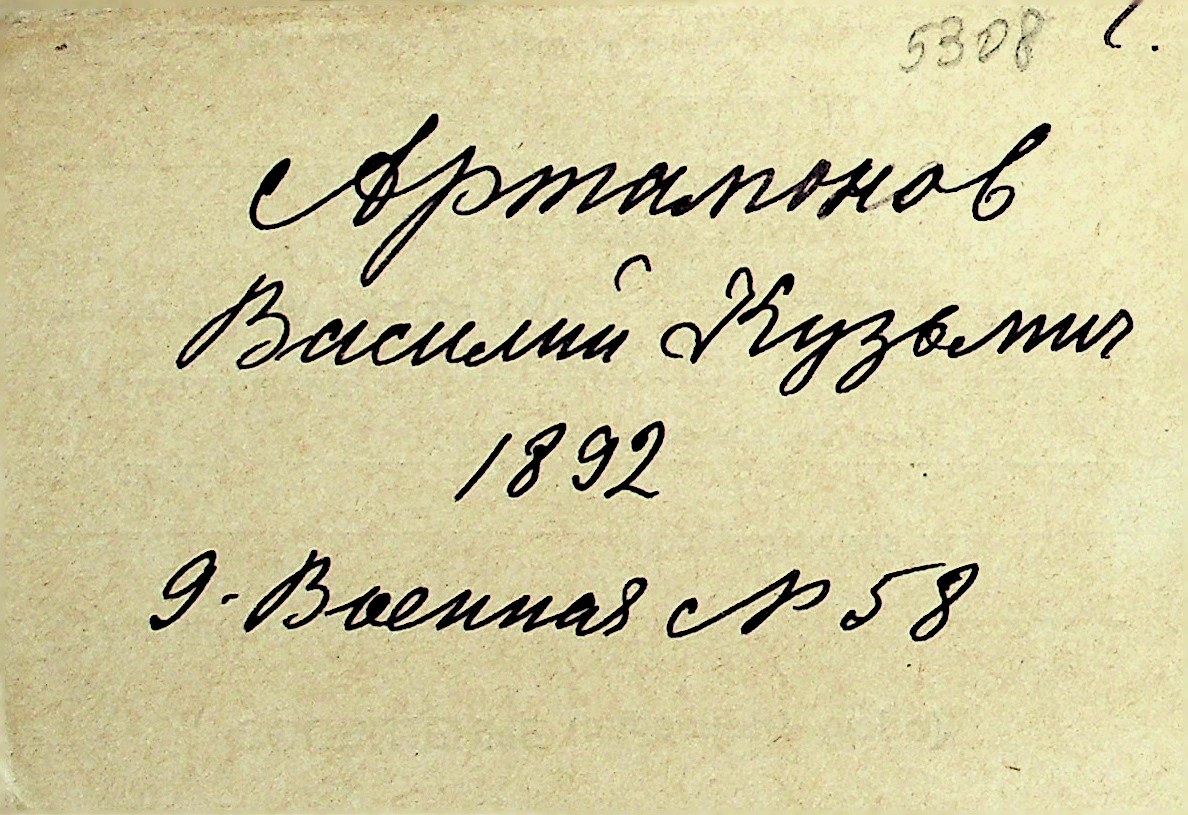 5308
Артамонов
Василий Кузьмич
1892
9-Военная № 58